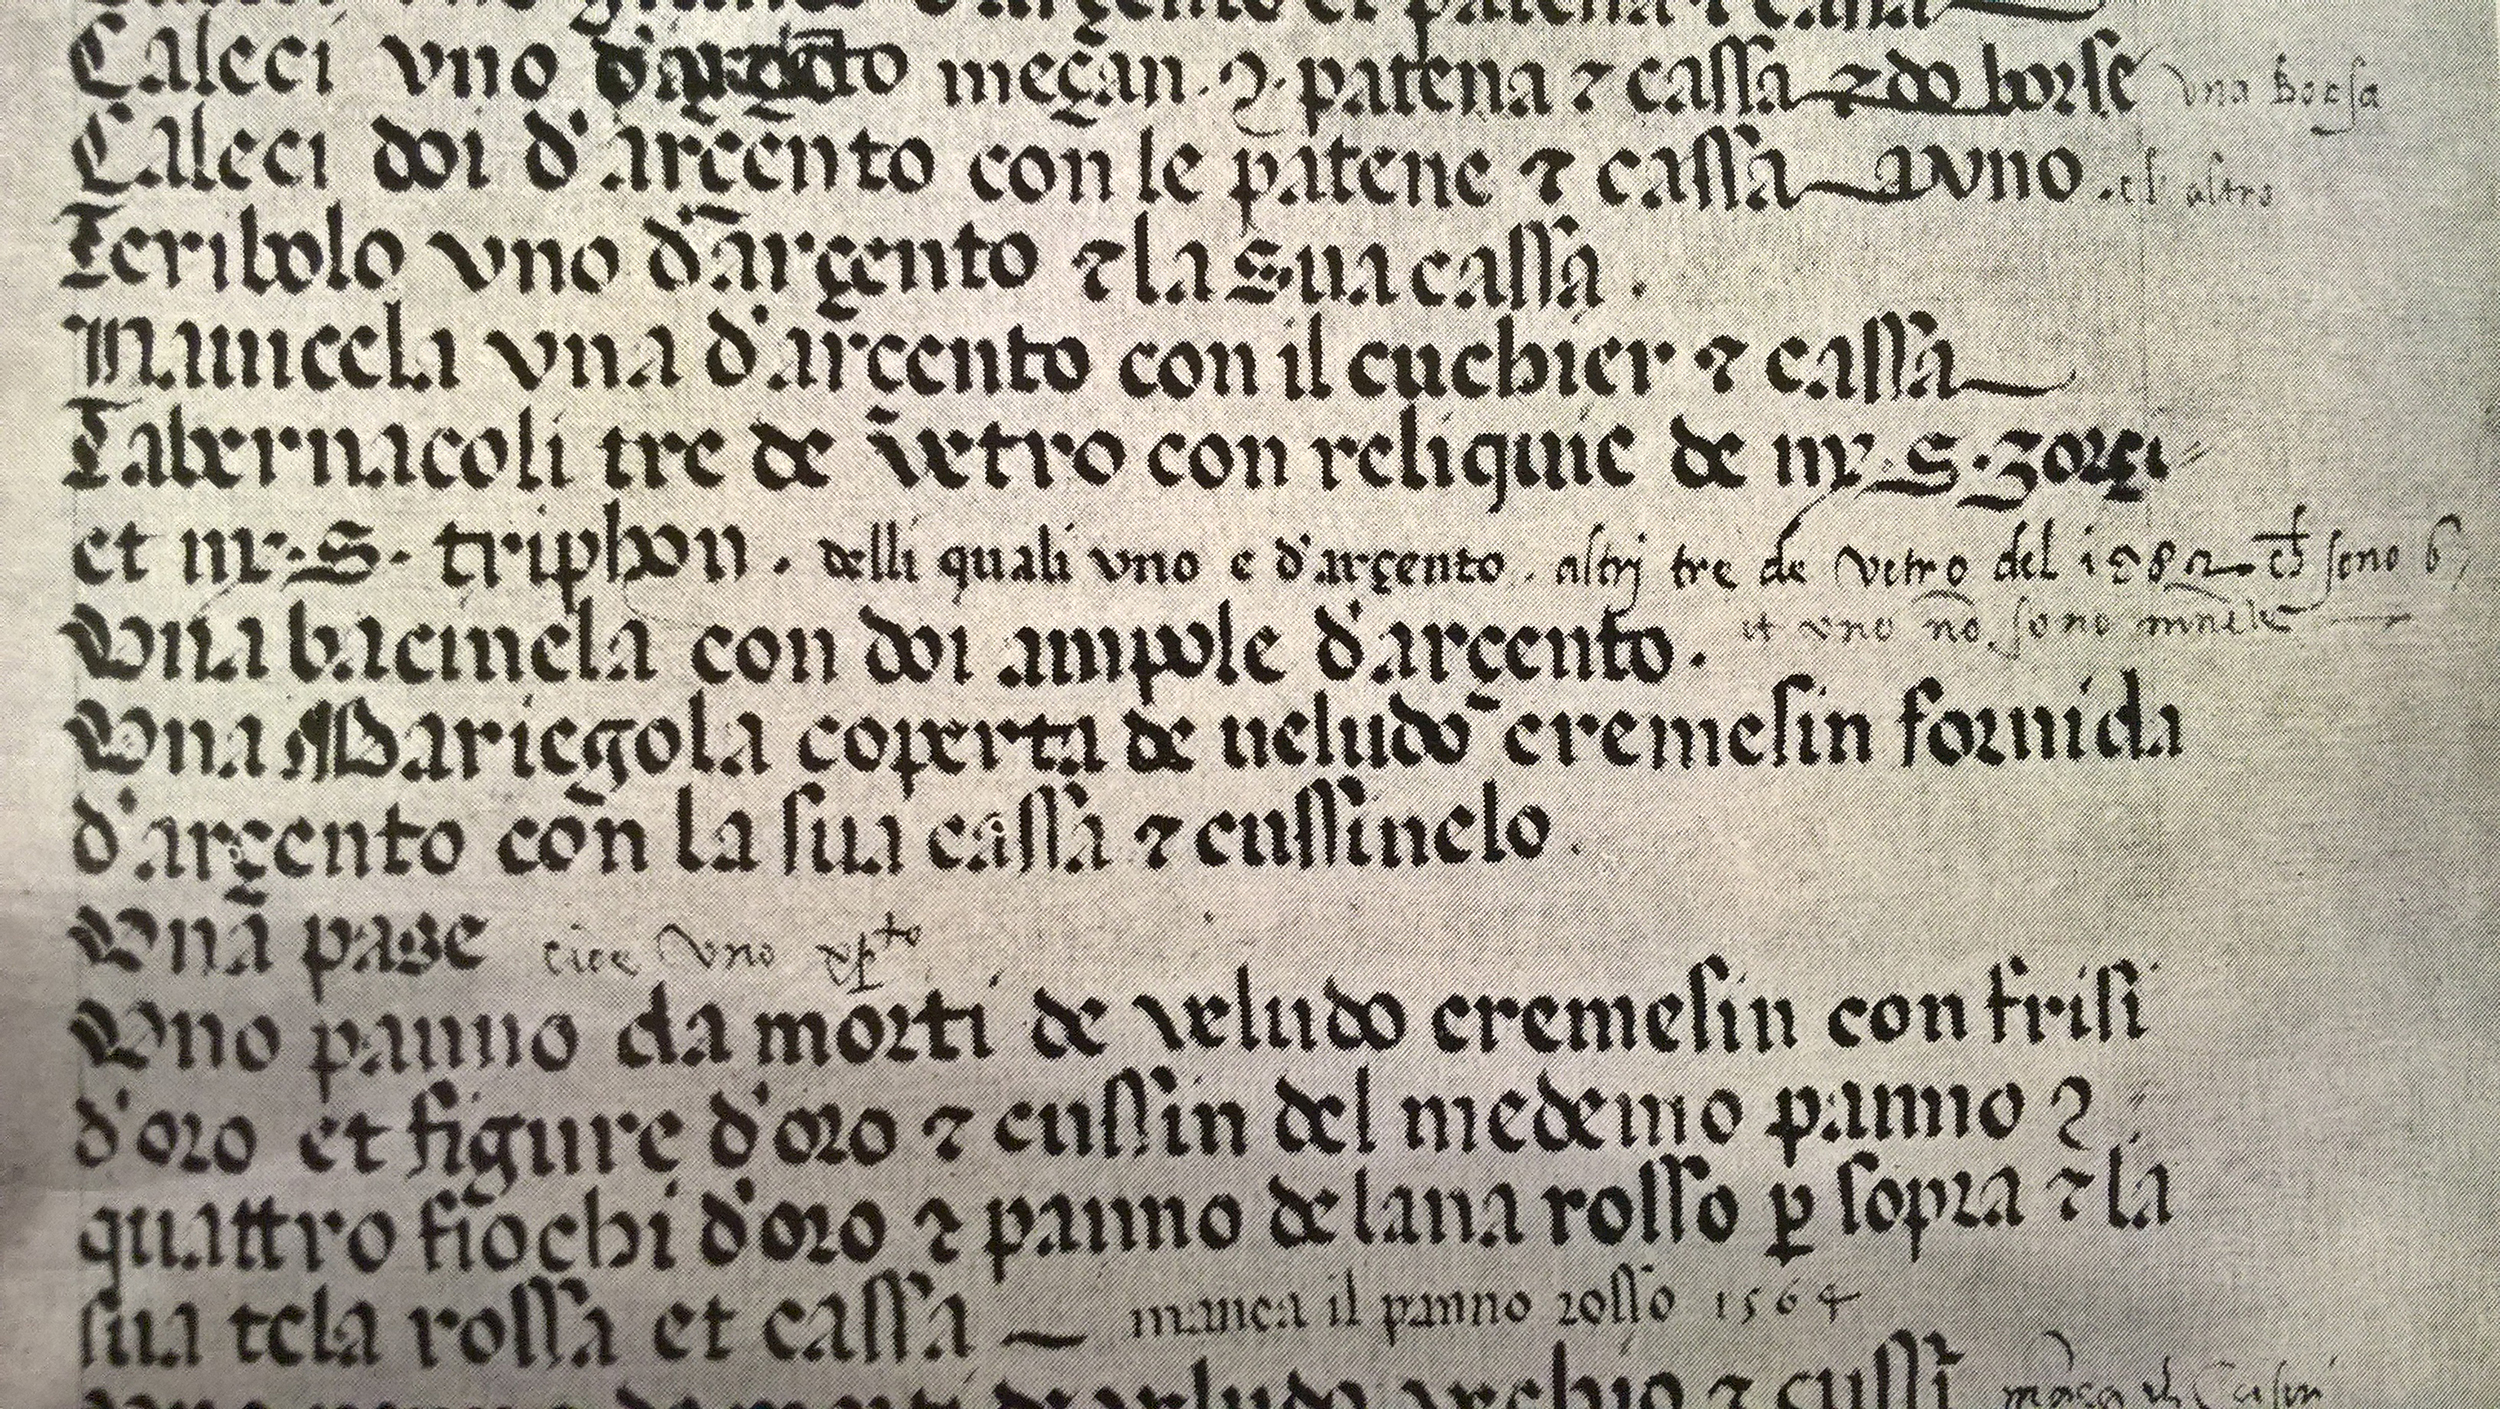 d'argento et patena ⁊ cassa
Caleci vno d'argẽto meçan. ꝛ. patena ⁊ cassa ⁊ do borse vna borsa
Caleci doi d'arçento con le patene ⁊ cassa a vno. el altro
Teribolo vno d'arçento ⁊ la sua cassa.
Nauicela vna d'arçento con il cuchier ⁊ cassa
Tabernacoli tre de vetro con reliquie de mr. S. zorçi
et mr. S. triphon. delli quali vno e d'arçento. altrj tre de vetro del 1582 sono 6
Vna bacinela con doi ampole d'arçento. et vno nõ sono
Vna Mariegola coperta de ueludo cremesin fornida
d'arçento con la sua cassa ⁊ cussinelo.
Vna pase cioe vno xp̃to
Vno panno da morti de veludo cremesin con frisi
d'oro et figure d'oro ⁊ cussin del medemo panno ⁊
quattro fiochi d'oro ⁊ panno de lana rosso ꝑ sopra ⁊ la
sua tela rossa et cassa — manca il panno rosso 1564
de veludo vechio ⁊ cussi